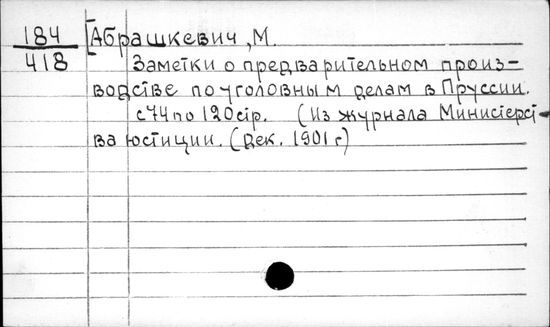 184 [Абрашкевич, М.
418 Заметки о предварительном произ-
водстве по уголовным делам в Пруссии.
с 74 по 120 стр. (Из журнала Министерст-
ва юстиции. (Дек. 1901 г)